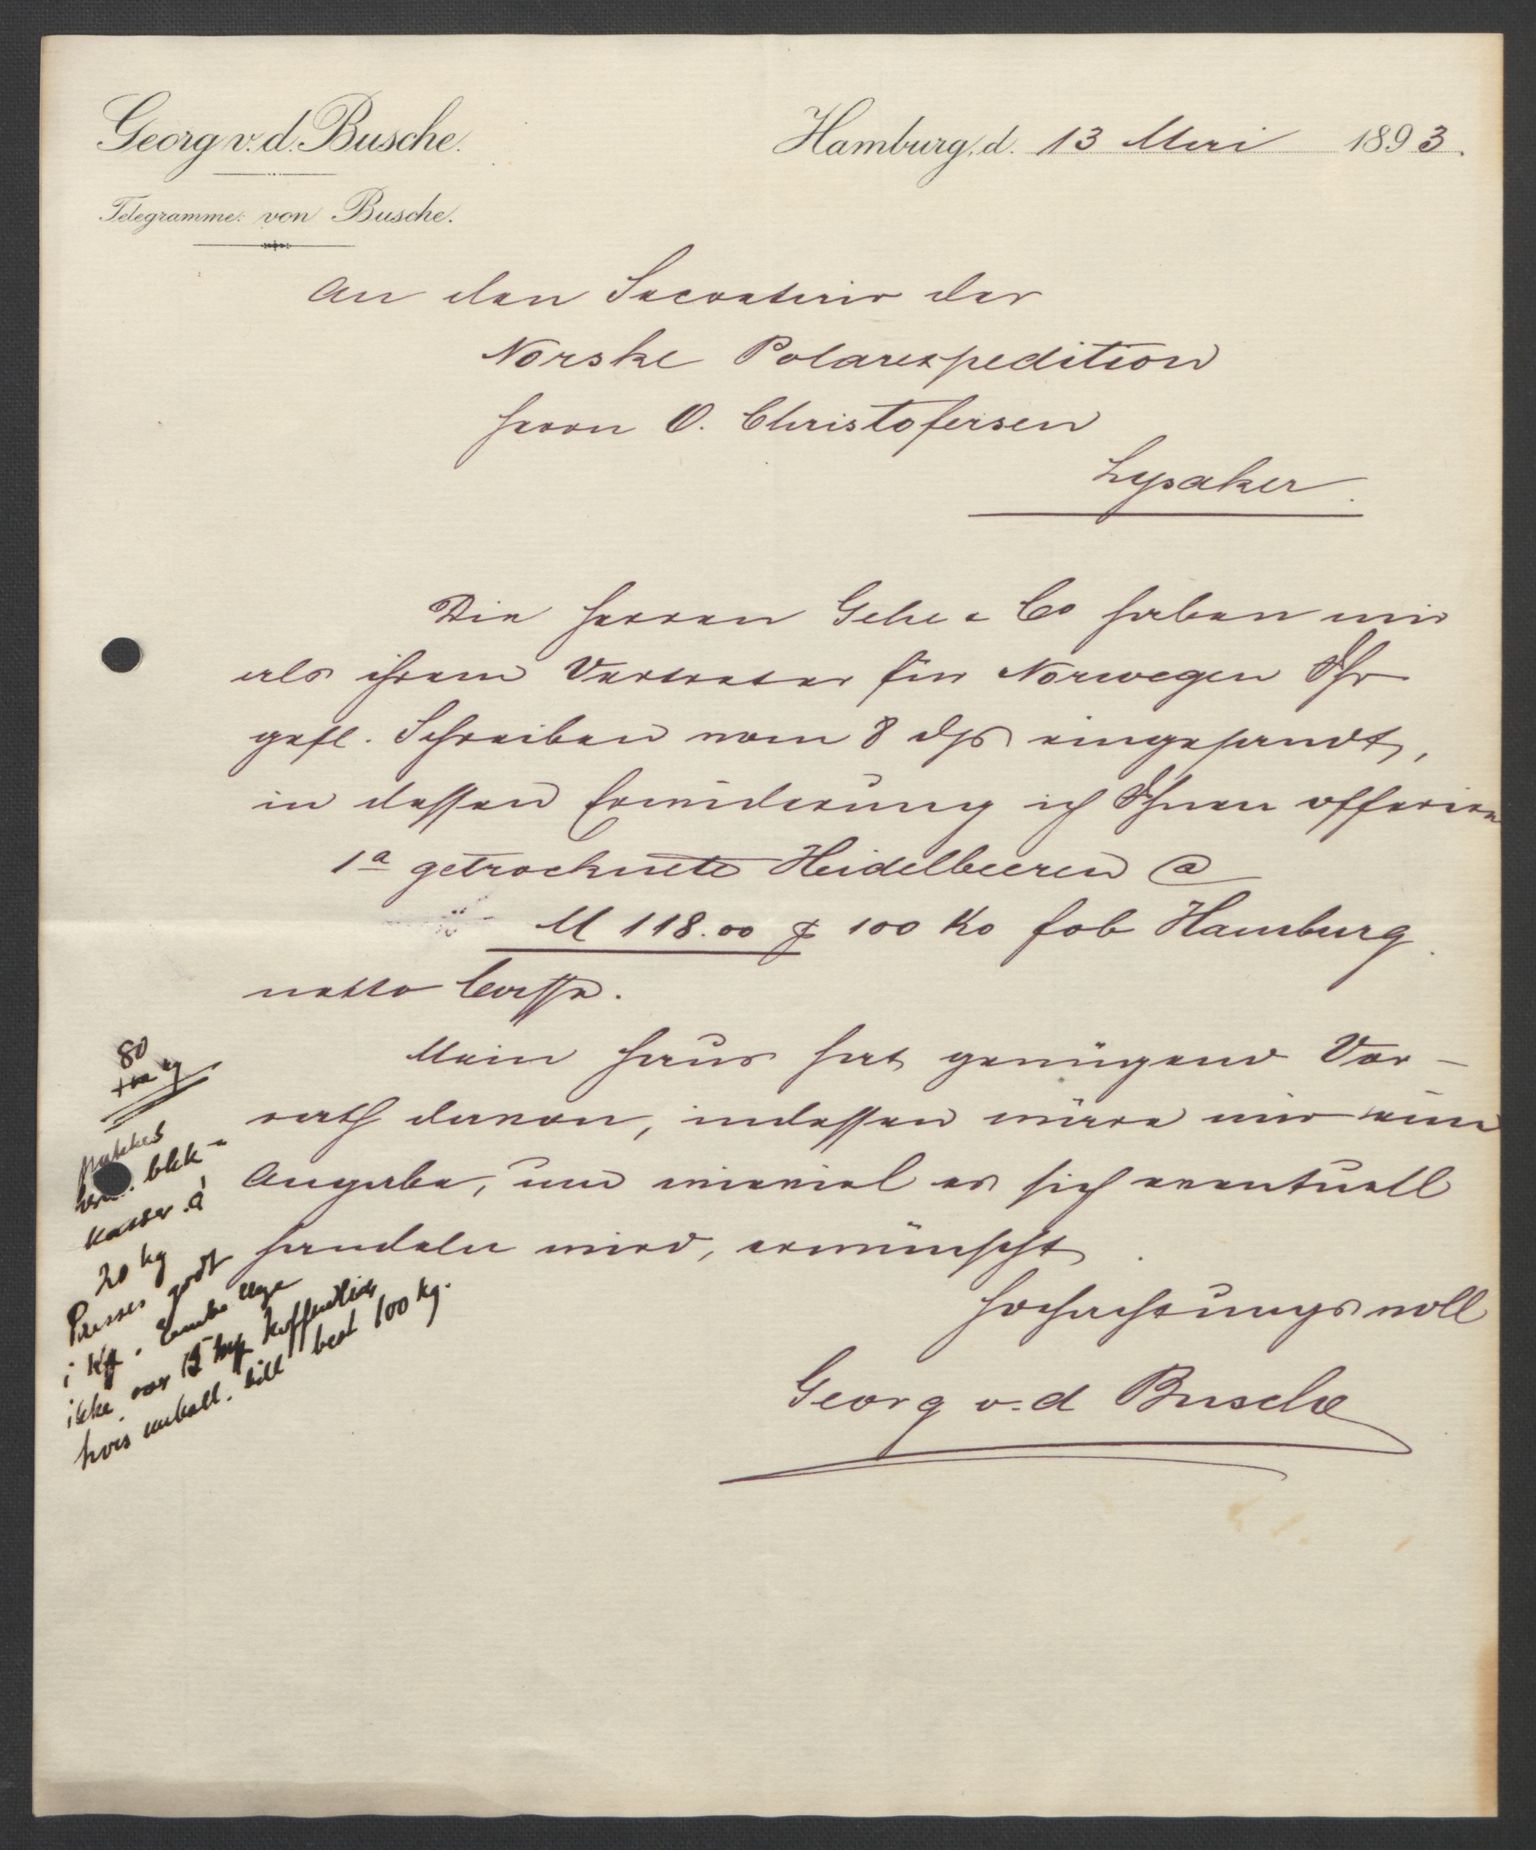 Georg v. d. Busche.
Hamburg, d. 13 Mai 1893.
Telegramme: von Busche.
An den Secretair der
Norske Polarexpedition
Herrn O. Christofersen
Lysaker.
Die Herren Gehe & Co haben mir
als ihrem Vertreter für Norwegen Ihr
gefl. Schreiben vom 8 djs eingesandt,
in dessen Erwiderung ich Ihnen offerire
1a getrocknete Heidelbeeren @
M 118.00 p 100 Ko fob Hamburg.
netto Cassa.
Mein Haus hat genügend Vor-
rath davon, indessen wäre mir eine
Angabe, um wieviel es sich eventuell
handeln wird, erwünscht.
Hochachtungsvoll
Georg v. d Busche
80
kg
pakkes
blik-
kasser á
20 kg
Presses godt
i
ikke over 15 kg
hvis emball. best 100 kg.